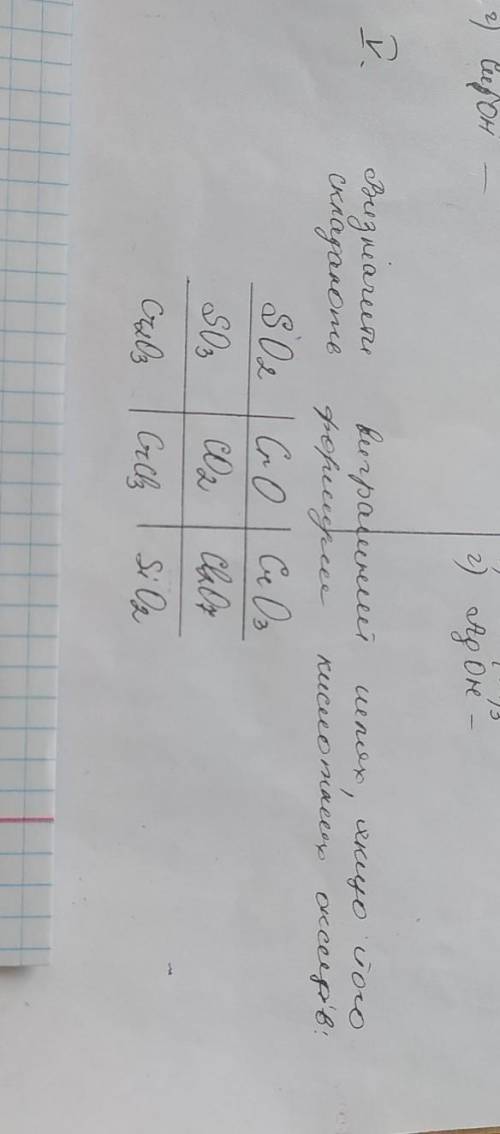 г) CuOH —
г) AgOH —
V. Визначити виграшний шлях, якщо його
складають формули кислотних оксидів:
SO2 | CrO | CrO3
SO3 | CO2 | Cl2O7
Cr2O3 | CrCl3 | SiO2